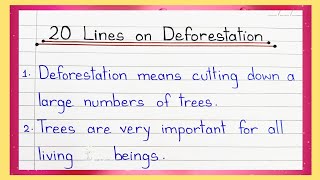 20 Lines on Deforestation.
1. Deforestation means cutting down a
large numbers of trees.
2. Trees are very important for all
living beings.